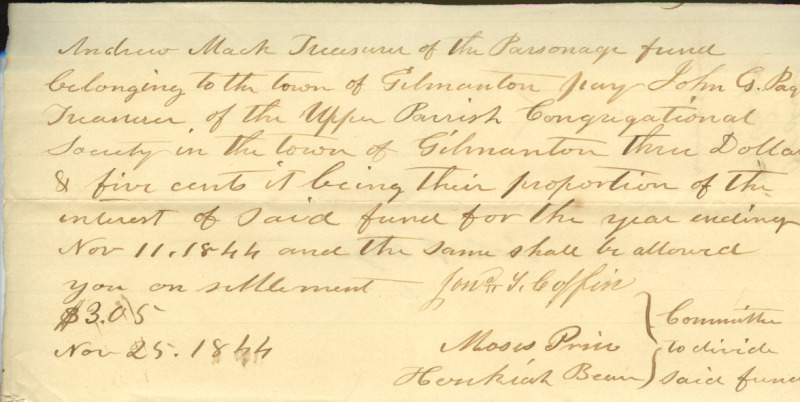 Andrew Mack Treasurer of the Parsonage fund
belonging to the town of Gilmanton pay John G. Pag
Treasurer of the Upper Parrish Congregational
Society in the town of Gilmanton three Dolla
& five cents it being their proportion of the
interest of said fund for the year ending
Nov 11. 1844 and the same shall be allowed
you on settlement
$3.05
Nov 25. 1844
T. Coffin
Moses
Bean
Committee
to divide
said fund